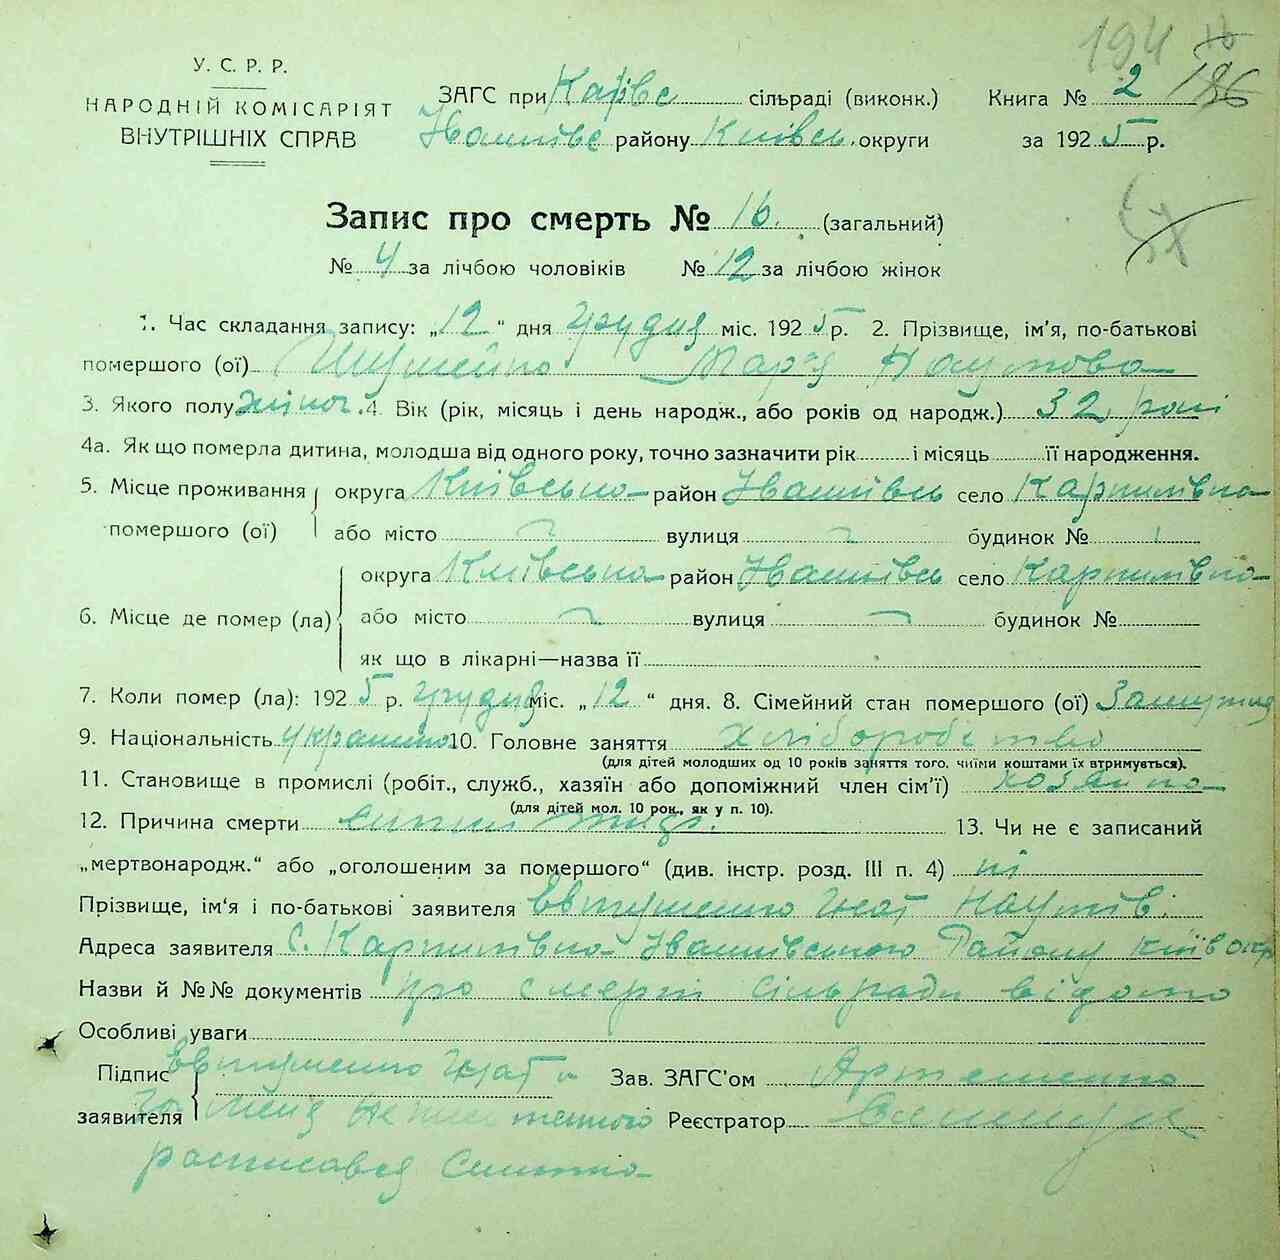 194
186
У. С. Р. Р.
НАРОДНІЙ КОМІСАРІЯТ
ВНУТРІШНІХ СПРАВ
ЗАГС при Карпівс сільраді (виконк.) Книга № 2
Іванківс району Київськ. округи за 1925 р.
Запис про смерть № 16. (загальний)
№ 4 за лічбою чоловіків № 12 за лічбою жінок
1. Час складання запису: „12“ дня грудня міс. 1925 р. 2. Прізвище, ім'я, по-батькові
помершого (ої) Марія Наумова
3. Якого полу жіноч. 4. Вік (рік, місяць і день народж., або років од народж.) 32 роки
4а. Як що померла дитина, молодша від одного року, точно зазначити рік і місяць її народження.
5. Місце проживання округа Київська район Іванківськ село Карпилівка
помершого (ої) або місто вулиця будинок №
округа Київська район Іванківськ село Карпилівка
6. Місце де помер (ла) або місто вулиця будинок №
як що в лікарні—назва її
7. Коли помер (ла): 1925 р. грудня міс. „12“ дня. 8. Сімейний стан помершого (ої) Замужня
9. Національність українка 10. Головне заняття хліборобство
(для дітей молодших од 10 років заняття того, чиїми коштами їх втримується).
11. Становище в промислі (робіт., служб., хазяїн або допоміжний член сім'ї) хозяйка
(для дітей мол. 10 рок., як у п. 10).
12. Причина смерти 13. Чи не є записаний
„мертвонародж.“ або „оголошеним за помершого“ (див. інстр. розд. III п. 4) ні
Прізвище, ім'я і по-батькові заявителя Євтушенко Гнат Наумів.
Адреса заявителя С. Карпилівка Іванківського Району Київ окр
Назви й №№ документів про смерть Сільради відомо
Особливі уваги
Підпис Євтушенко Гнат а Зав. ЗАГС'ом Артеменко
заявителя За мене не письменного Реєстратор
расписався